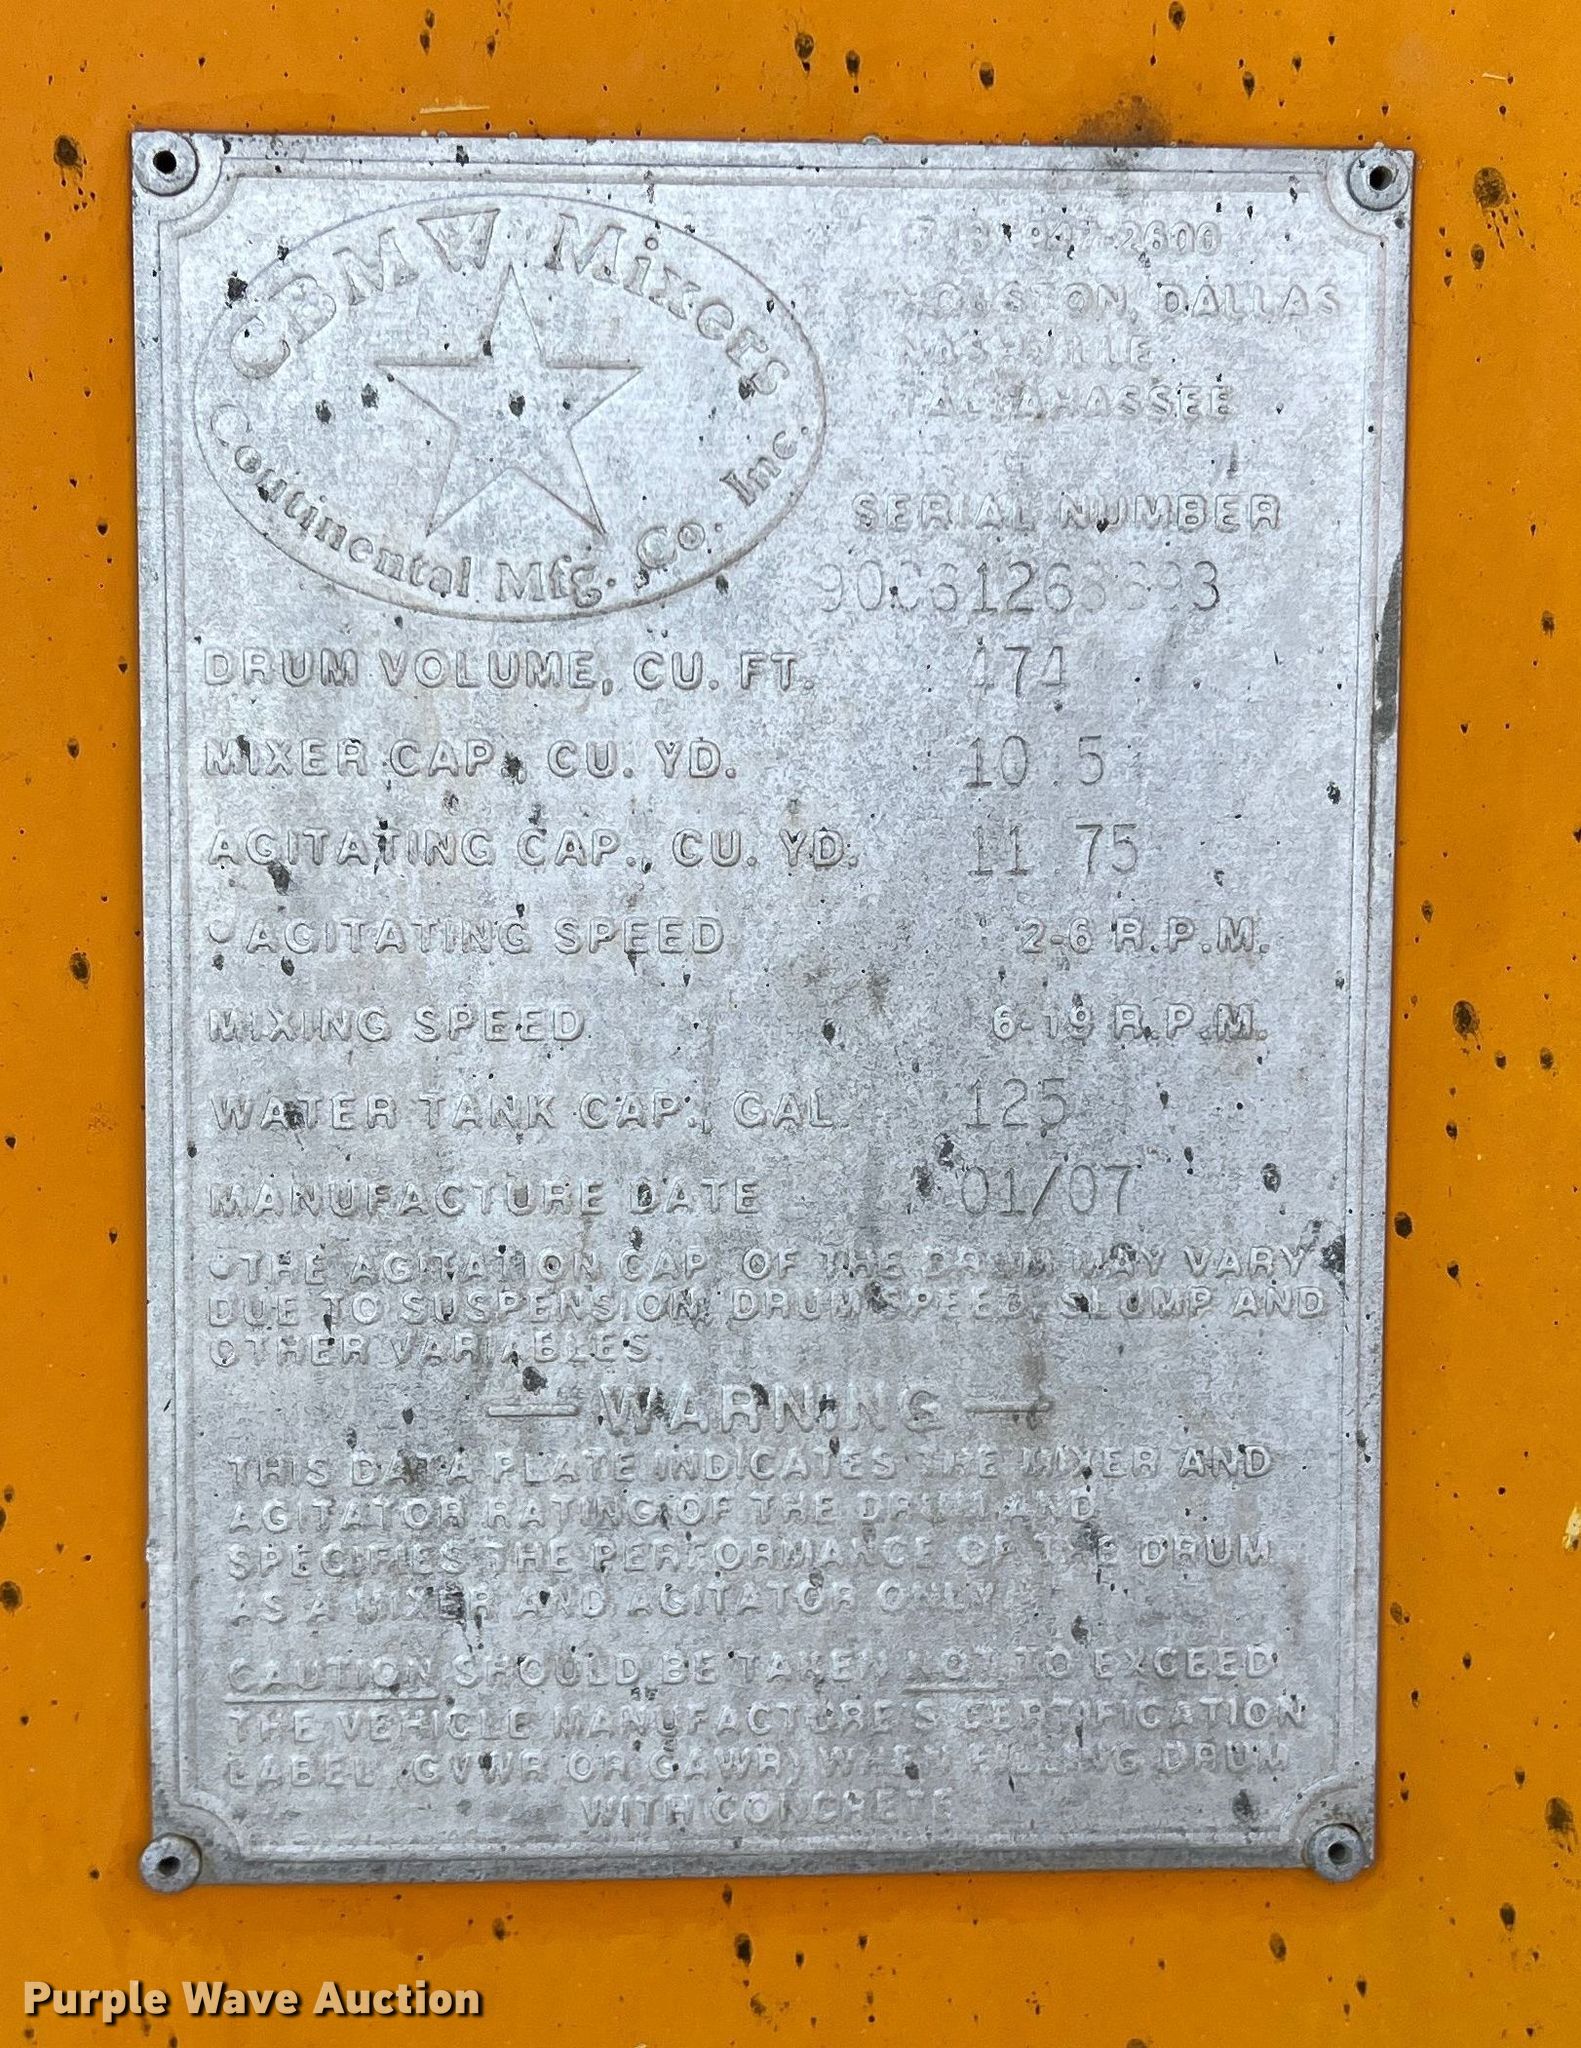 CBMW Mixers
Continental Mfg. Co. Inc.
HOUSTON, DALLAS
NASHVILLE
TALLAHASSEE
SERIAL NUMBER
DRUM VOLUME, CU. FT. 474
MIXER CAP., CU. YD. 10.5
AGITATING CAP., CU. YD. 11.75
•AGITATING SPEED 2-6 R.P.M.
MIXING SPEED 6-19 R.P.M.
WATER TANK CAP., GAL. 125
MANUFACTURE DATE 01/07
•THE AGITATION CAP. OF THE DRUM MAY VARY
DUE TO SUSPENSION, DRUM SPEED, SLUMP AND
OTHER VARIABLES.
— WARNING —
THIS DATA PLATE INDICATES THE MIXER AND
AGITATOR RATING OF THE DRUM AND
SPECIFIES THE PERFORMANCE OF THE DRUM
AS A MIXER AND AGITATOR ONLY.
CAUTION SHOULD BE TAKEN NOT TO EXCEED
THE VEHICLE MANUFACTURE'S CERTIFICATION
LABEL (GVWR OR GAWR) WHEN FILLING DRUM
WITH CONCRETE
Purple Wave Auction